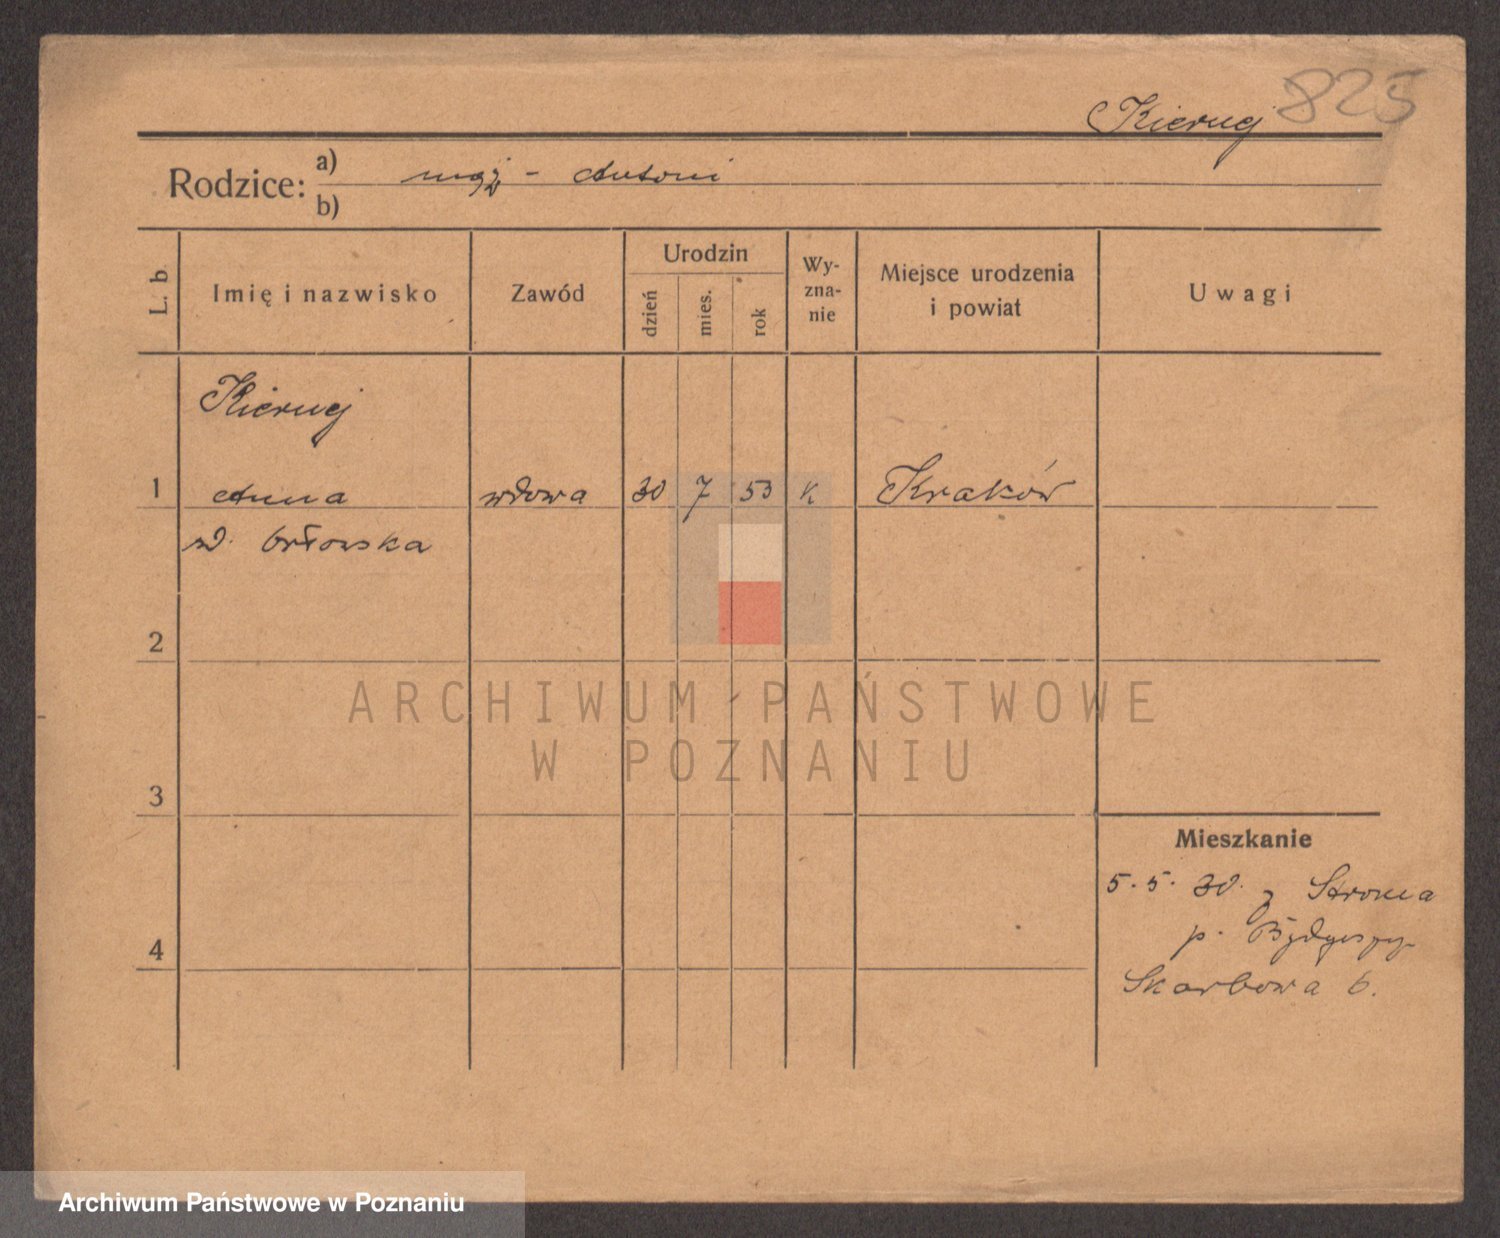 825
Kieruj
Rodzice: a) mąż - Antoni
b)
L. b
Imię i nazwisko
Zawód
Urodzin
dzień
mies.
rok
Wy-
zna-
nie
Miejsce urodzenia
i powiat
Uwagi
Kieruj
1 Anna wdowa 30 7 53 K Kraków
Orłowska
2
3
4
Mieszkanie
5.5.30. z
p.
Skarbowa 6.
ARCHIWUM PAŃSTWOWE
W POZNANIU
Archiwum Państwowe w Poznaniu